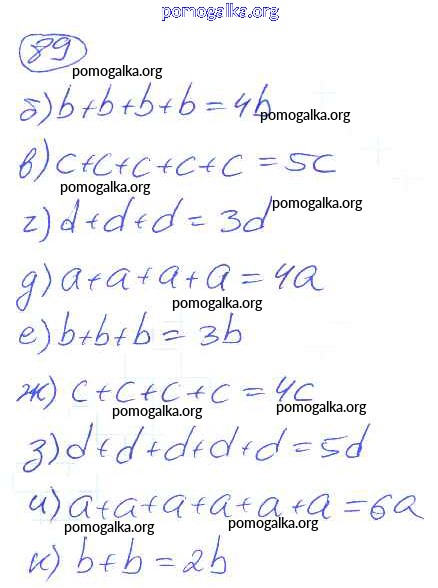 pomogalka.org
89
pomogalka.org
б) b+b+b+b=4b
pomogalka.org
в) c+c+c+c+c=5c
pomogalka.org
pomogalka.org
г) d+d+d=3d
д) a+a+a+a=4a
pomogalka.org
е) b+b+b=3b
ж) c+c+c+c=4c
pomogalka.org pomogalka.org
з) d+d+d+d+d=5d
и) a+a+a+a+a+a=6a
pomogalka.org pomogalka.org
к) b+b=2b